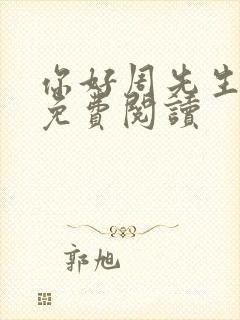 你好周先生
免費閱讀
郭旭